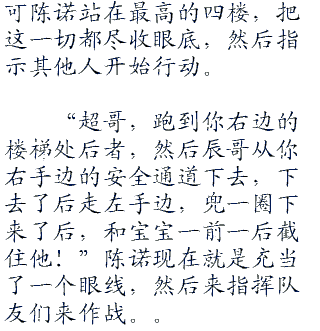 可陈诺站在最高的四楼，把
这一切都尽收眼底，然后指
示其他人开始行动。
“超哥，跑到你右边的
楼梯处后者，然后辰哥从你
右手边的安全通道下去，下
去了后走左手边，兜一圈下
来了后，和宝宝一前一后截
住他！”陈诺现在就是充当
了一个眼线，然后来指挥队
友们来作战。。